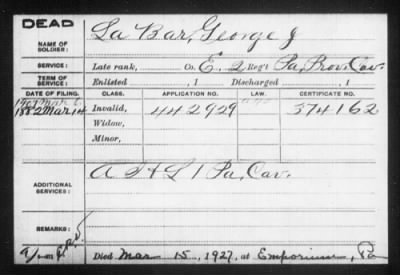 DEAD
NAME OF SOLDIER: La Bar, George J
SERVICE: Late rank, Co. E. 2 Reg't Pa. Prov. Cav.
TERM OF SERVICE: Enlisted , 1 Discharged , 1
DATE OF FILING. CLASS. APPLICATION NO. LAW. CERTIFICATE NO.
1907 Mar
1882 Mar 14 Invalid, 442929 374162
Widow,
Minor,
ADDITIONAL SERVICES: A & L 1 Pa. Cav.
REMARKS:
Died Mar 15, 1927, at Emporium, Pa